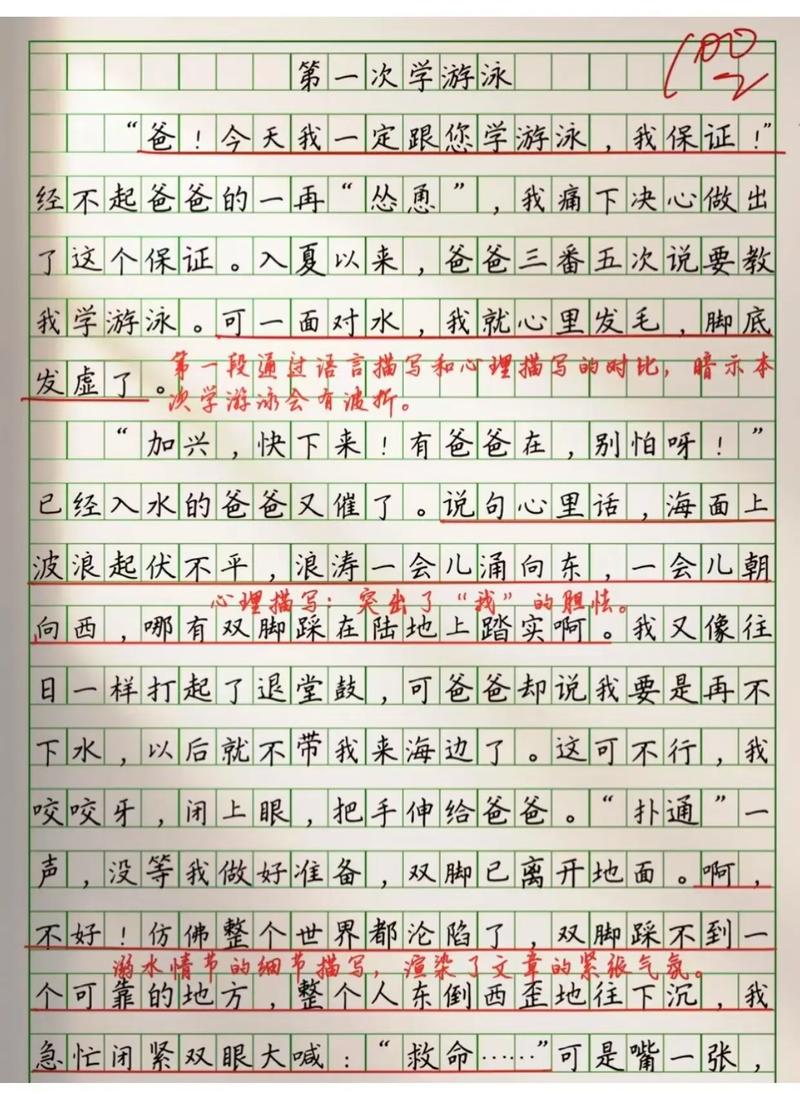 第一次学游泳
100
“爸！今天我一定跟您学游泳，我保证！”
经不起爸爸的一再“怂恿”，我痛下决心做出
了这个保证。入夏以来，爸爸三番五次说要教
我学游泳。可一面对水，我就心里发毛，脚底
发虚了。
第一段通过语言描写和心理描写的对比，暗示本
次学游泳会有波折。
“加兴，快下来！有爸爸在，别怕呀！”
已经入水的爸爸又催了。说句心里话，海面上
波浪起伏不平，浪涛一会儿涌向东，一会儿朝
心理描写：突出了“我”的胆怯。
向西，哪有双脚踩在陆地上踏实啊。我又像往
日一样打起了退堂鼓，可爸爸却说我要是再不
下水，以后就不带我来海边了。这可不行，我
咬咬牙，闭上眼，把手伸给爸爸。“扑通”一
声，没等我做好准备，双脚已离开地面。啊，
不好！仿佛整个世界都沦陷了，双脚踩不到一
溺水情节的细节描写，渲染了文章的紧张气氛。
个可靠的地方，整个人东倒西歪地往下沉，我
急忙闭紧双眼大喊：“救命……”可是嘴一张，